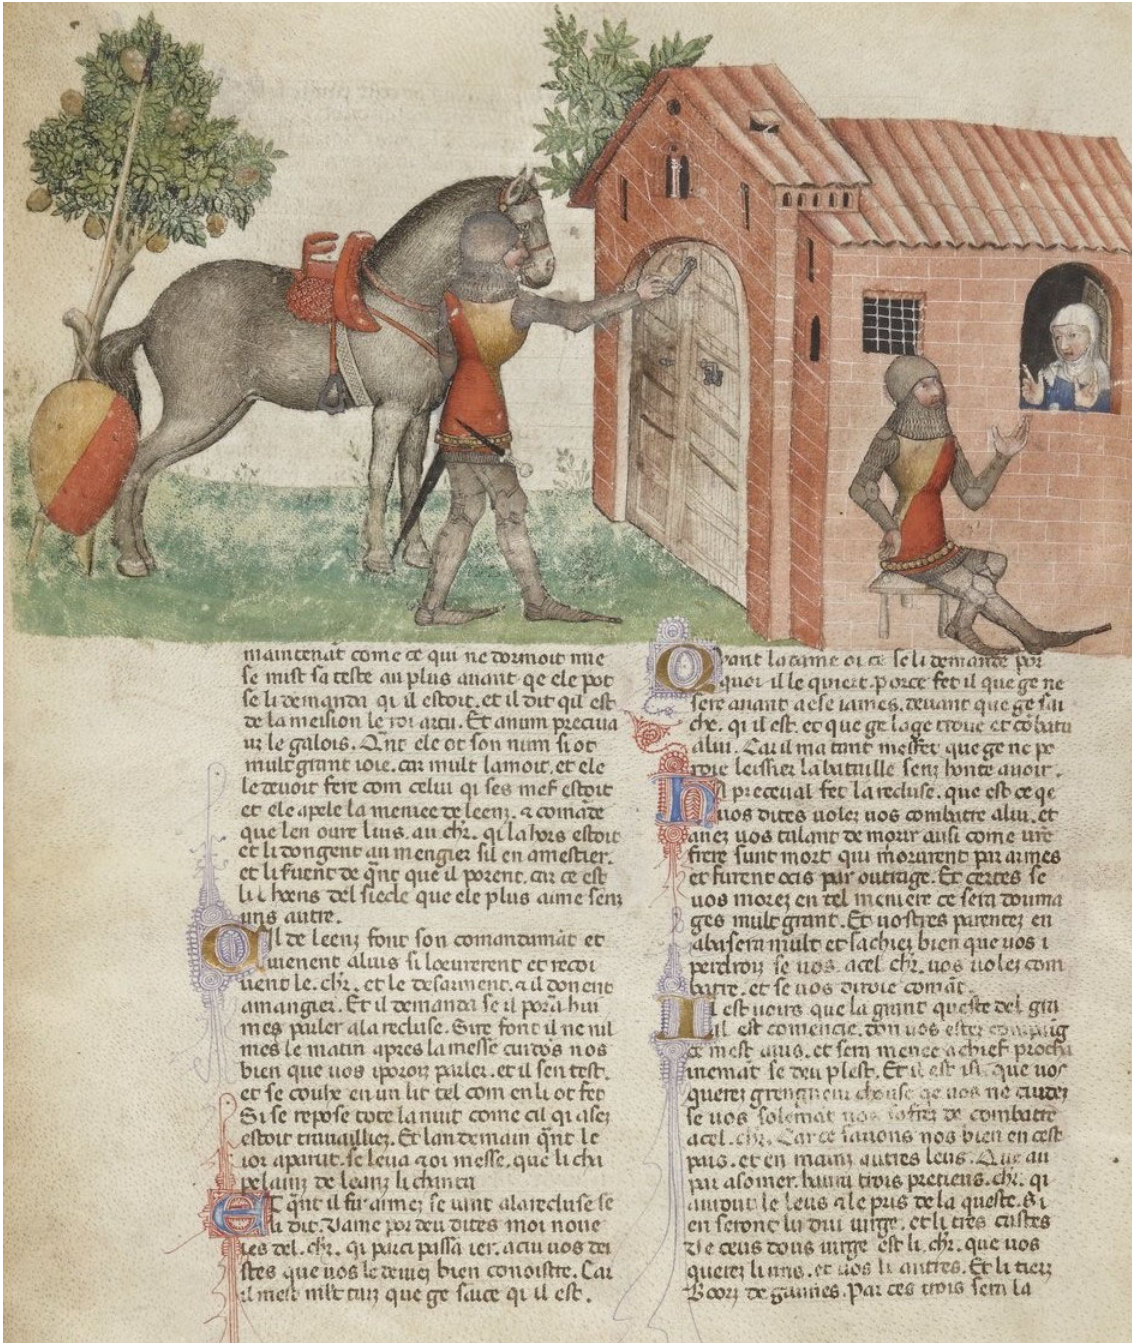 maintenāt come ce qui ne dormoit mie
se mist sa teste au plus auant qe ele pot
se li demanda qi il estoit. et il dit qil est
de la meision le roi artu. Et a num perceua
us le galois. Qn̄t ele ot son num si ot
mult grant ioie. car mult lamoit. et ele
le deuoit fere com celui qi ses nies estoit
et ele apele la meniee de leenz. ⁊ comāde
que len oure luis. au chr̄. qi la hors estoit
et li dongent au mengier sil en a mestier.
et li fuent de qn̄t que il porent. car ce est
li hoens del siecle que ele plus aime senz
uns autre.
Cil de leenz font son comandamāt et
uienent a luis si loeurerent et recoi
uent le. chr̄. et le desarment. ⁊ li donent
a mangier. Et il demanda se il porā hui
mes parler a la recluse. Sire font il nenil
mes le matin apres la messe cuidōs nos
bien que uos i poroiz parler. et il sen test.
et se couke en un lit tel com en li ot fet
Si se repose tote la nuit come cil qi asez
estoit trauailliez. Et lendemain qn̄t le
ior aparut. se leua ⁊ oi messe. que li cha
pelainz de leanz li chanta
Et qn̄t il fu armez se uint a la recluse se
li dit. Dame por deu dites moi noue
les del. chr̄. qi par ci passa ier. a cui uos dei
stes que uos le deuiez bien conoistre. Car
il mest mlt tart que ge sace qi il est.
Qvant la dame oi ce se li demande por
quoi il le quiert. Porce fet il que ge ne
sere auant a ese iames. deuant que ge sai
che. qi il est. et que ge lage troue et cōbatu
a lui. Car il ma tant meffet que ge ne po
roie leissier la bataille senz honte auoir.
Ha perceual fet la recluse. que est ce qe
uos dites uolez uos combatre a lui. et
auez uos talant de morir ausi come uȓe
frere sunt mort qui morurent par armes
et furent ocis par outrage. Et certes se
uos morez en tel meniere ce sera douma
ges mult grant. Et uostres parentez en
abasera mult et sachiez bien que uos i
perdroiz se uos. a cel. chr̄. uos uolez com
batre. et se uos diroie comāt.
Il est uoirs que la grant queste del gra
al est comencie. don uos estes compaig
ce mest auis. et sera menee a chief procha
inemāt se deu plest. Et il est isi que uos
querez grengneur chouse qe uos ne cuidez
se uos solemāt uos sofrez de combatre
a cel. chr̄. Car ce sauons nos bien en cest
pais. et en mainz autres leus. Que au
par asomer. haura trois precieus. chr̄. qi
auront le leus ⁊ le pris de la queste. Si
en seront li dui uirge. et li tres castes
De ceus dous uirge est li. chr̄. que uos
querez li uns. et uos li autres. Et li tierz
Boorz de gaunes. Par ces trois sera la